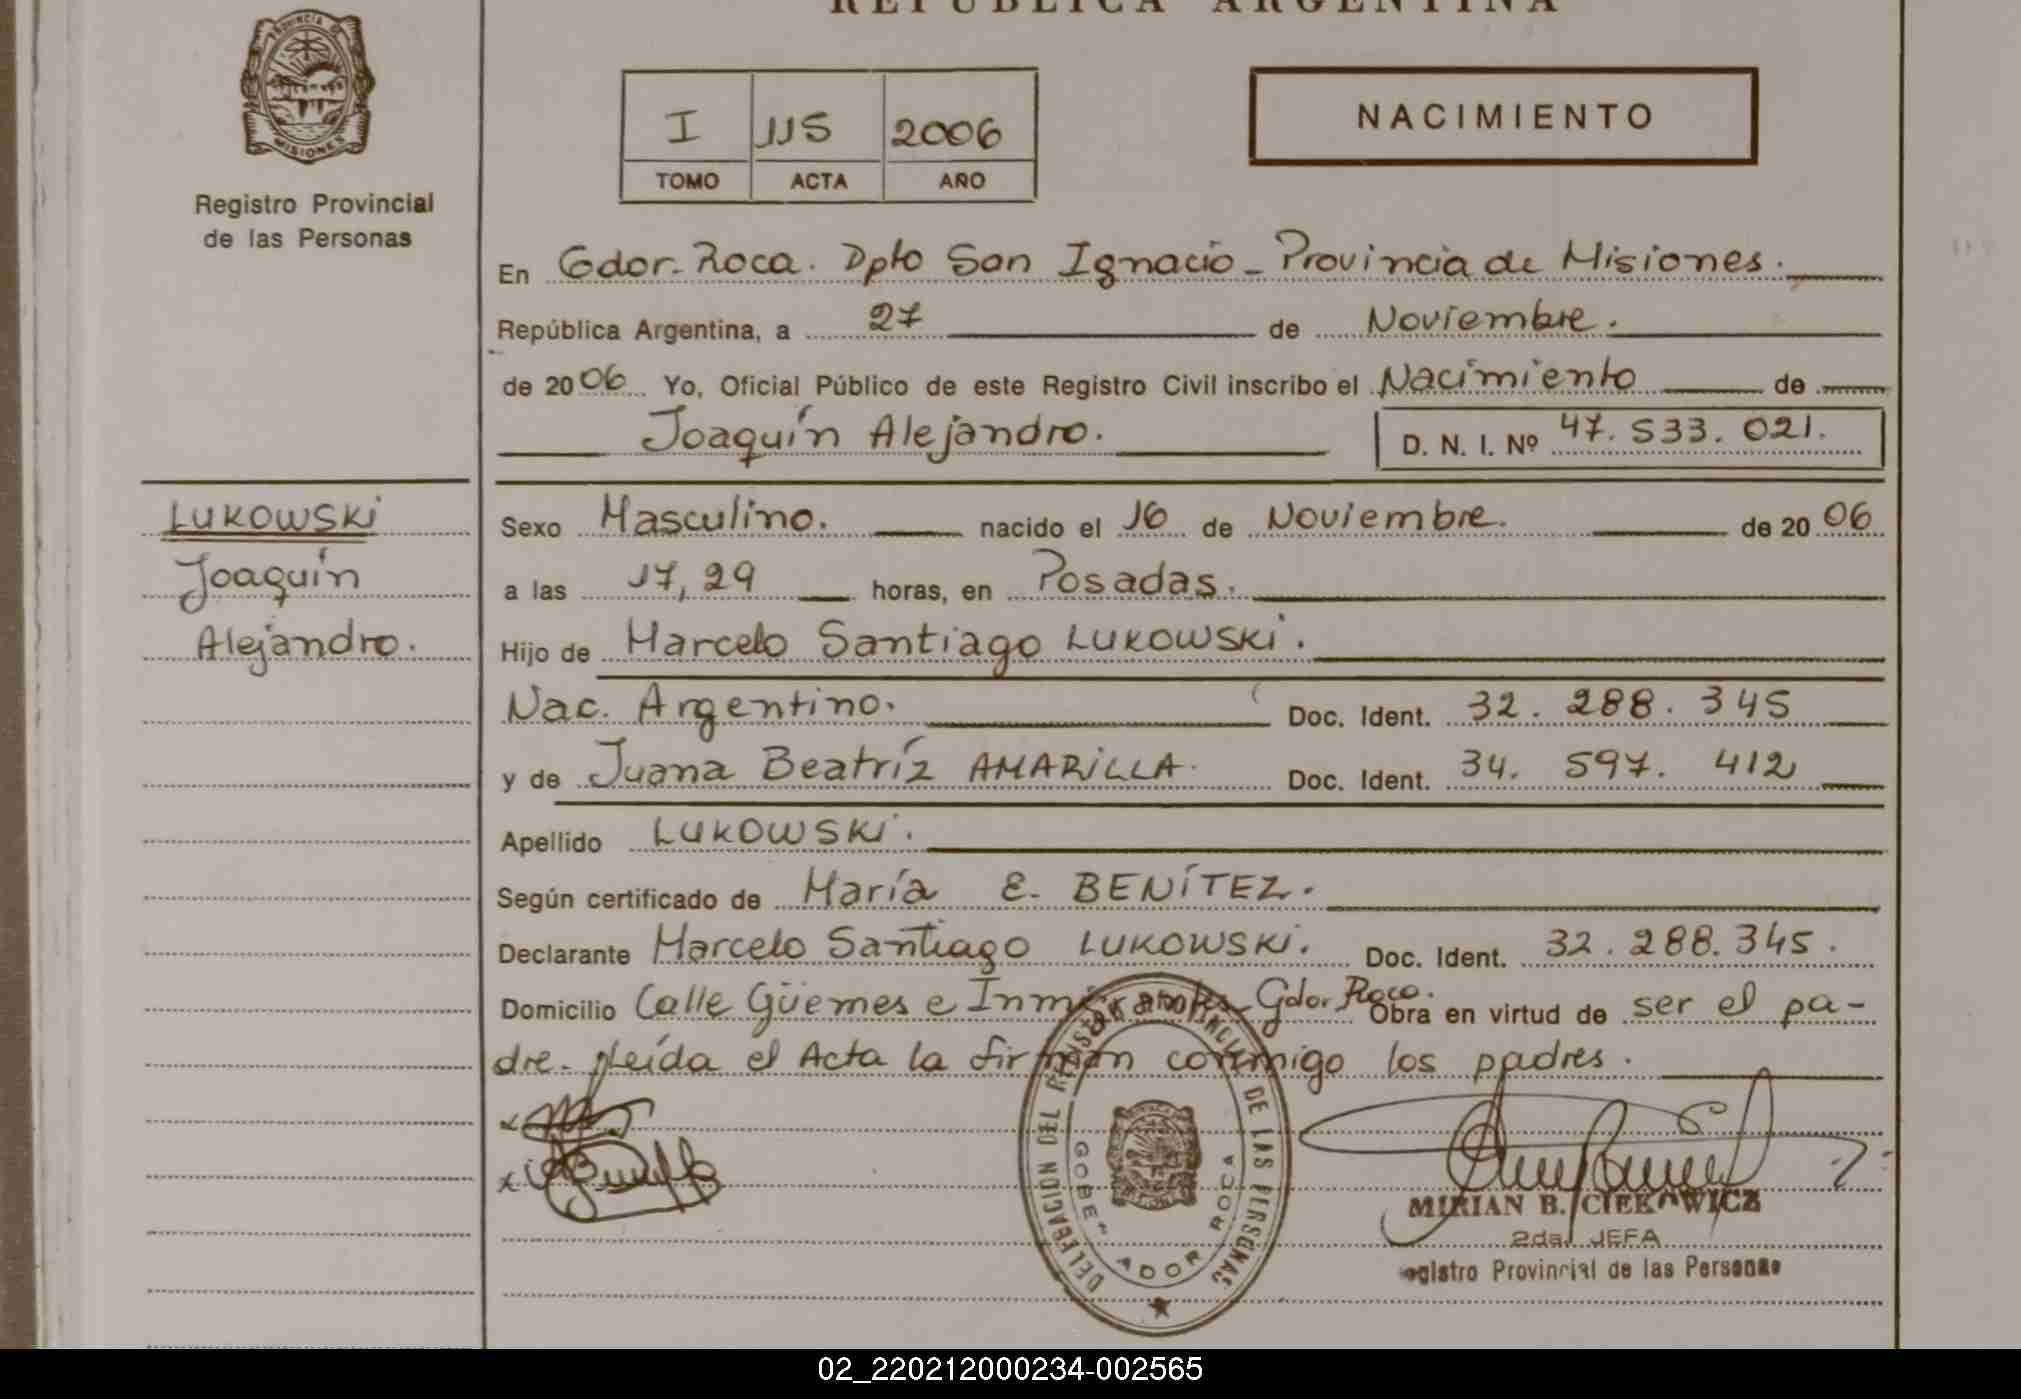 REPUBLICA ARGENTINA
PROVINCIA DE
MISIONES
Registro Provincial
de las Personas
I JJ5 2006
TOMO ACTA AÑO
NACIMIENTO
En Gdor. Roca. Dpto San Ignacio - Provincia de Misiones.
República Argentina, a 27 de Noviembre.
de 2006 Yo, Oficial Público de este Registro Civil inscribo el Nacimiento de
Joaquín Alejandro.
D. N. I. Nº 47.533.021.
LUKOWSKi
Joaquín
Alejandro.
Sexo Masculino. nacido el 16 de Noviembre. de 2006
a las 17,29 horas, en Posadas.
Hijo de Marcelo Santiago LUKOWSKi.
Nac. Argentino. Doc. Ident. 32.288.345
y de Juana Beatríz AMARiLLA. Doc. Ident. 34.597.412
Apellido LUKOWSKi.
Según certificado de María E. BENíTEZ.
Declarante Marcelo Santiago LUKOWSKi. Doc. Ident. 32.288.345.
Domicilio Calle Güemes e Inmigrantes - Gdor Roca. Obra en virtud de ser el pa-
dre. Leída el Acta la firman conmigo los padres.
DELEGACION DEL REGISTRO PROVINCIAL DE LAS PERSONAS
GOBERNADOR ROCA
MIRIAN B. CIEKOWICZ
2da. JEFA
Registro Provincial de las Personas
02_220212000234-002565